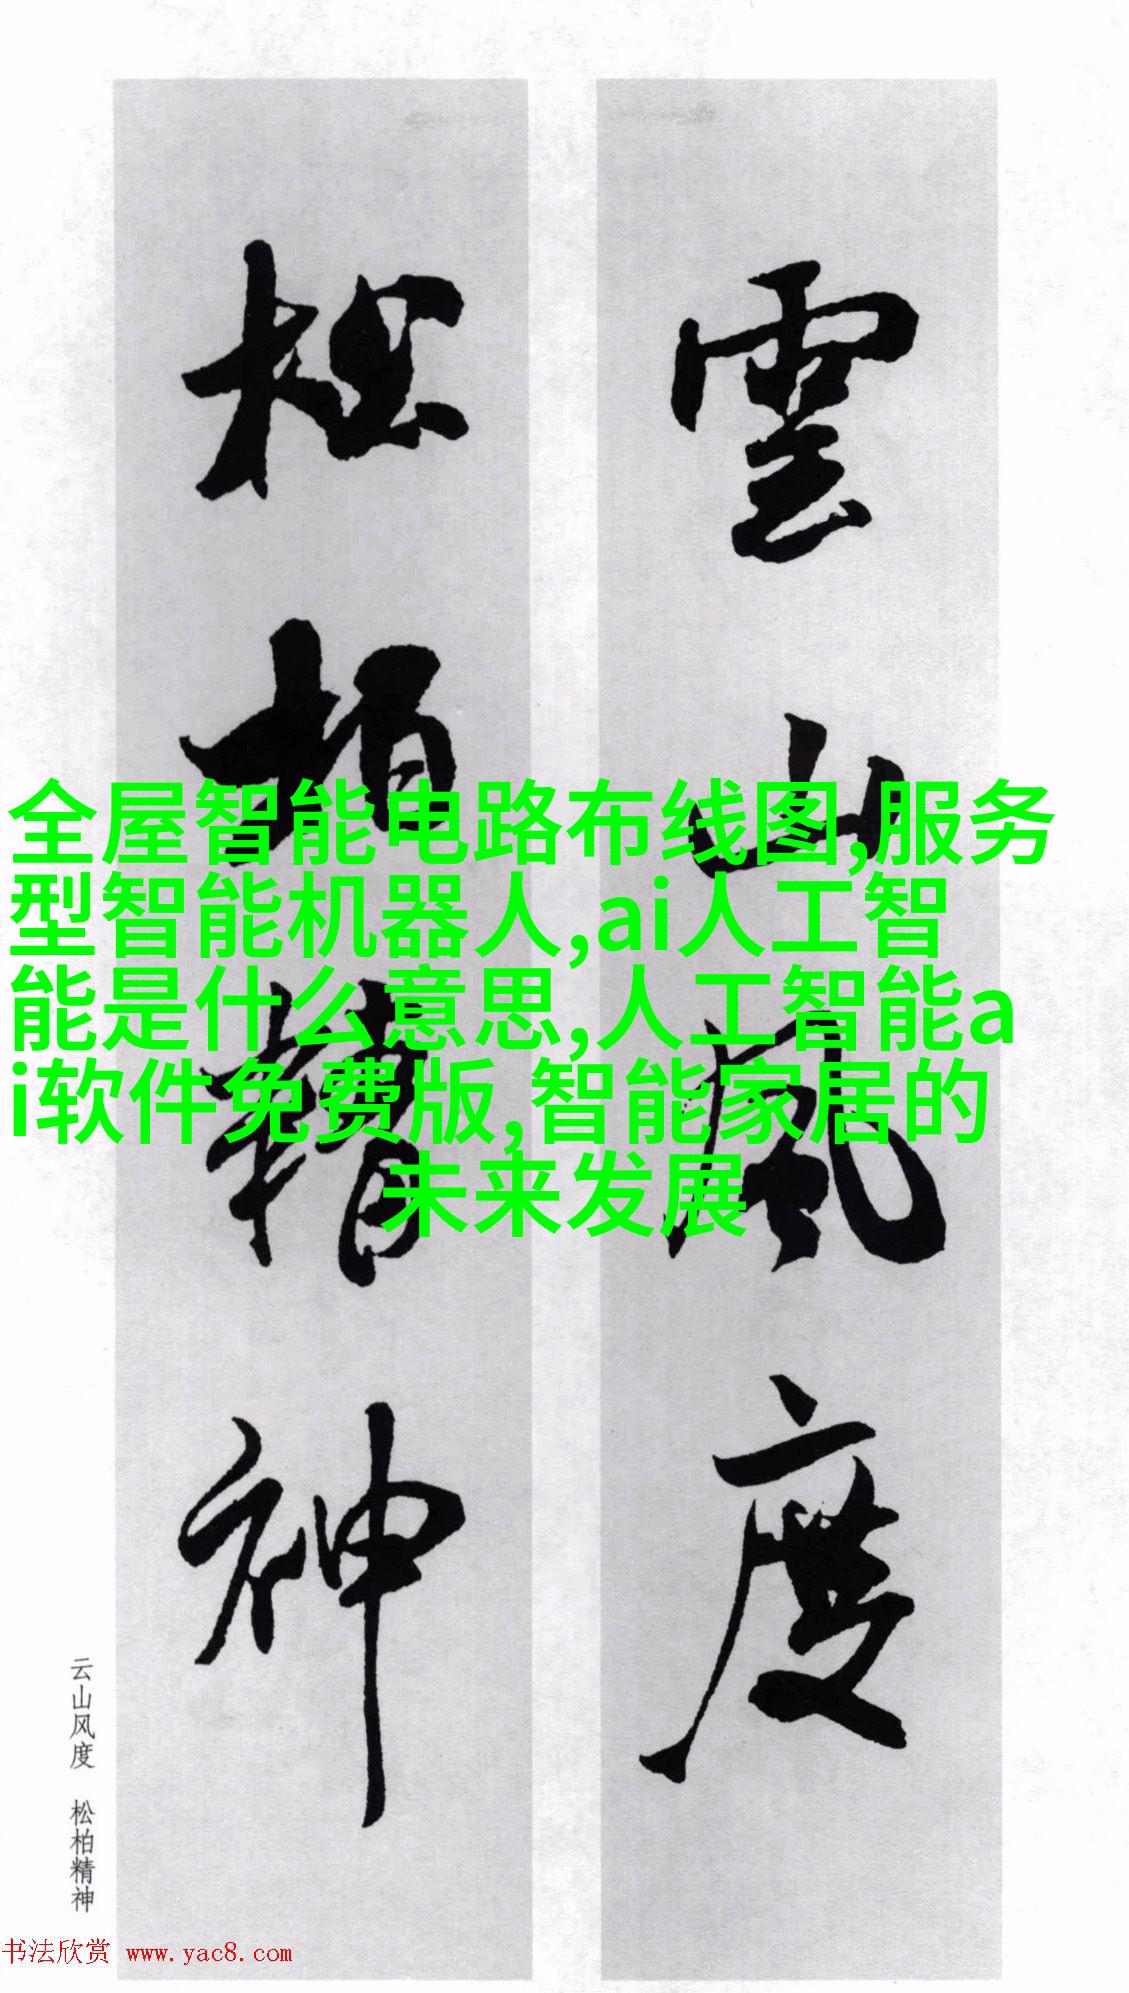 雲山風度
松柏精神
全屋智能电路布线图,服务
型智能机器人,ai人工智
能是什么意思,人工智能a
i软件免费版,智能家居的
未来发展
云山风度 松柏精神
书法欣赏 www.yac8.com